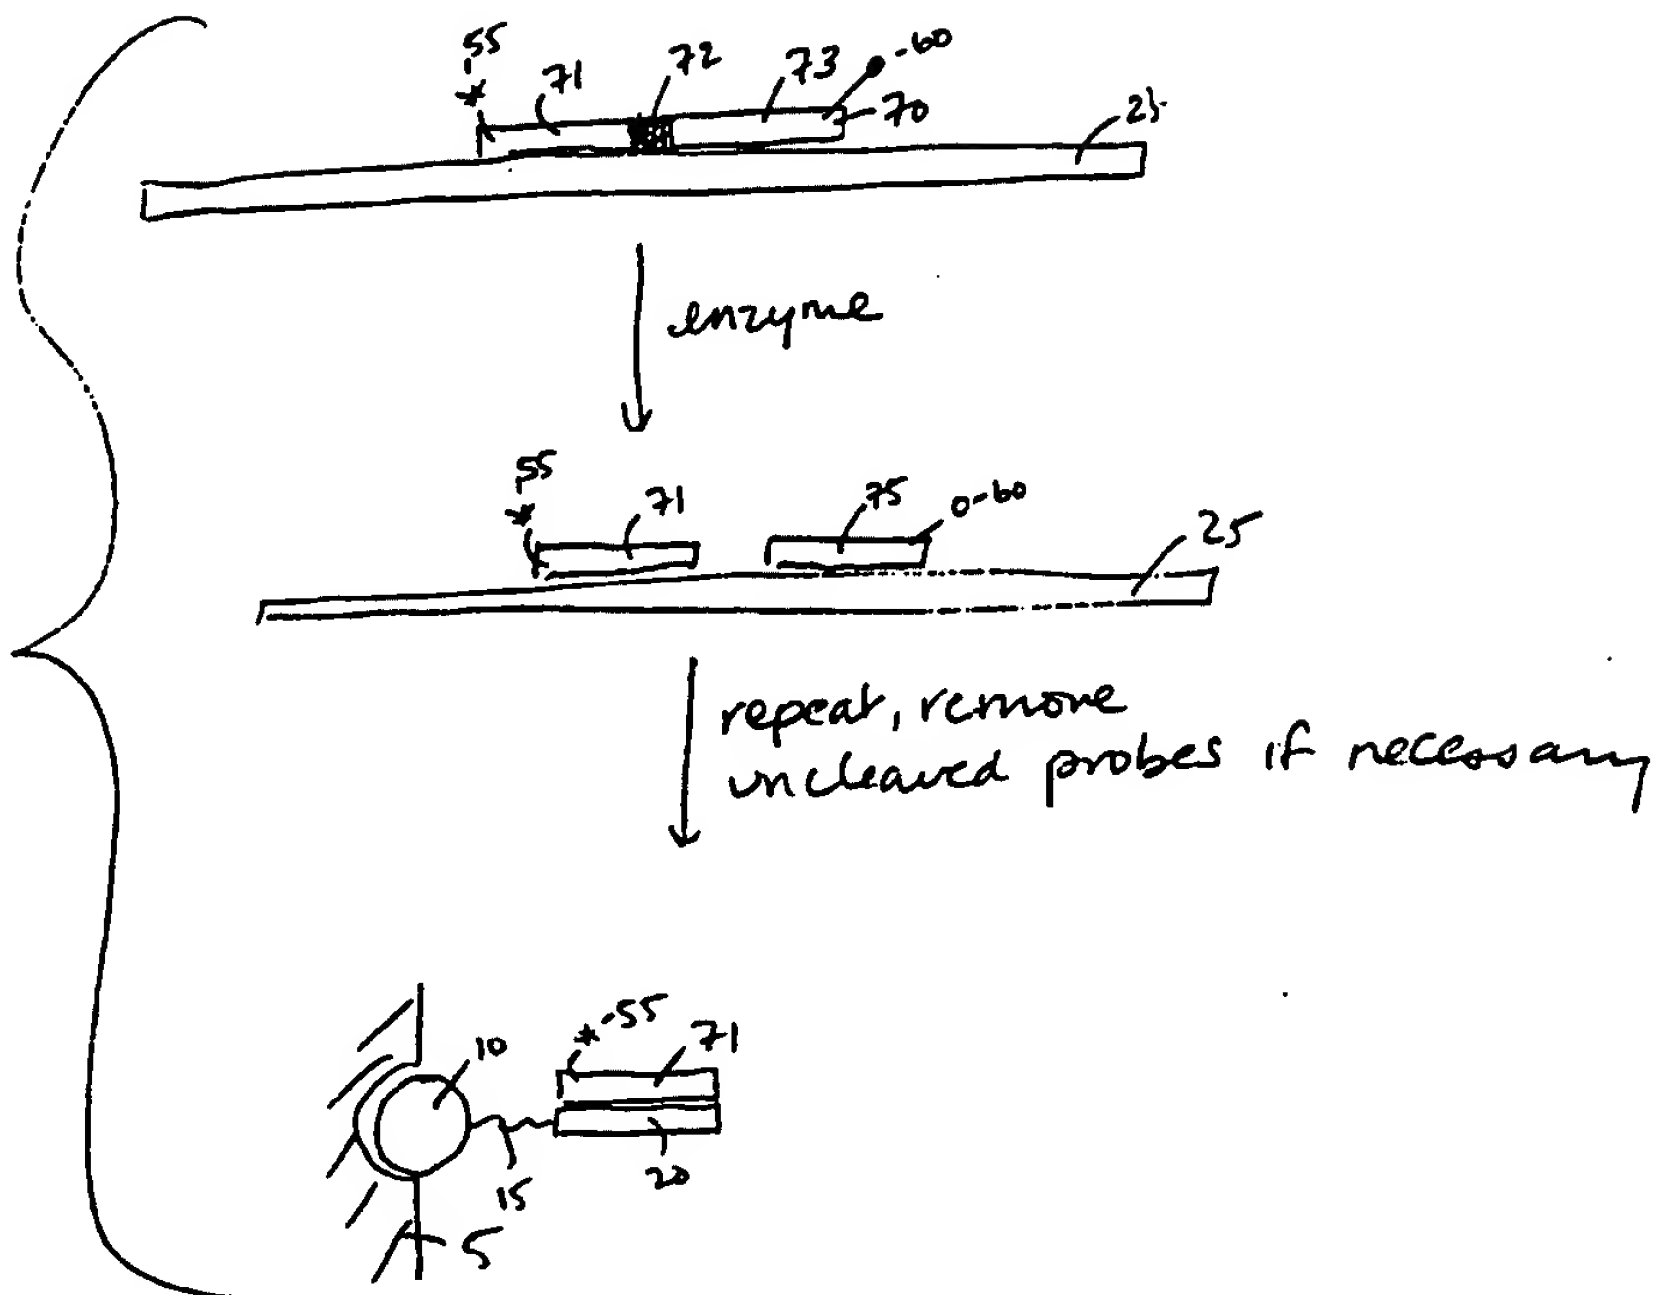 55
71
72
73
-60
70
25
enzyme
55
71
75
0-60
25
repeat, remove
uncleaved probes if necessary
10
*-55
71
15
20
5